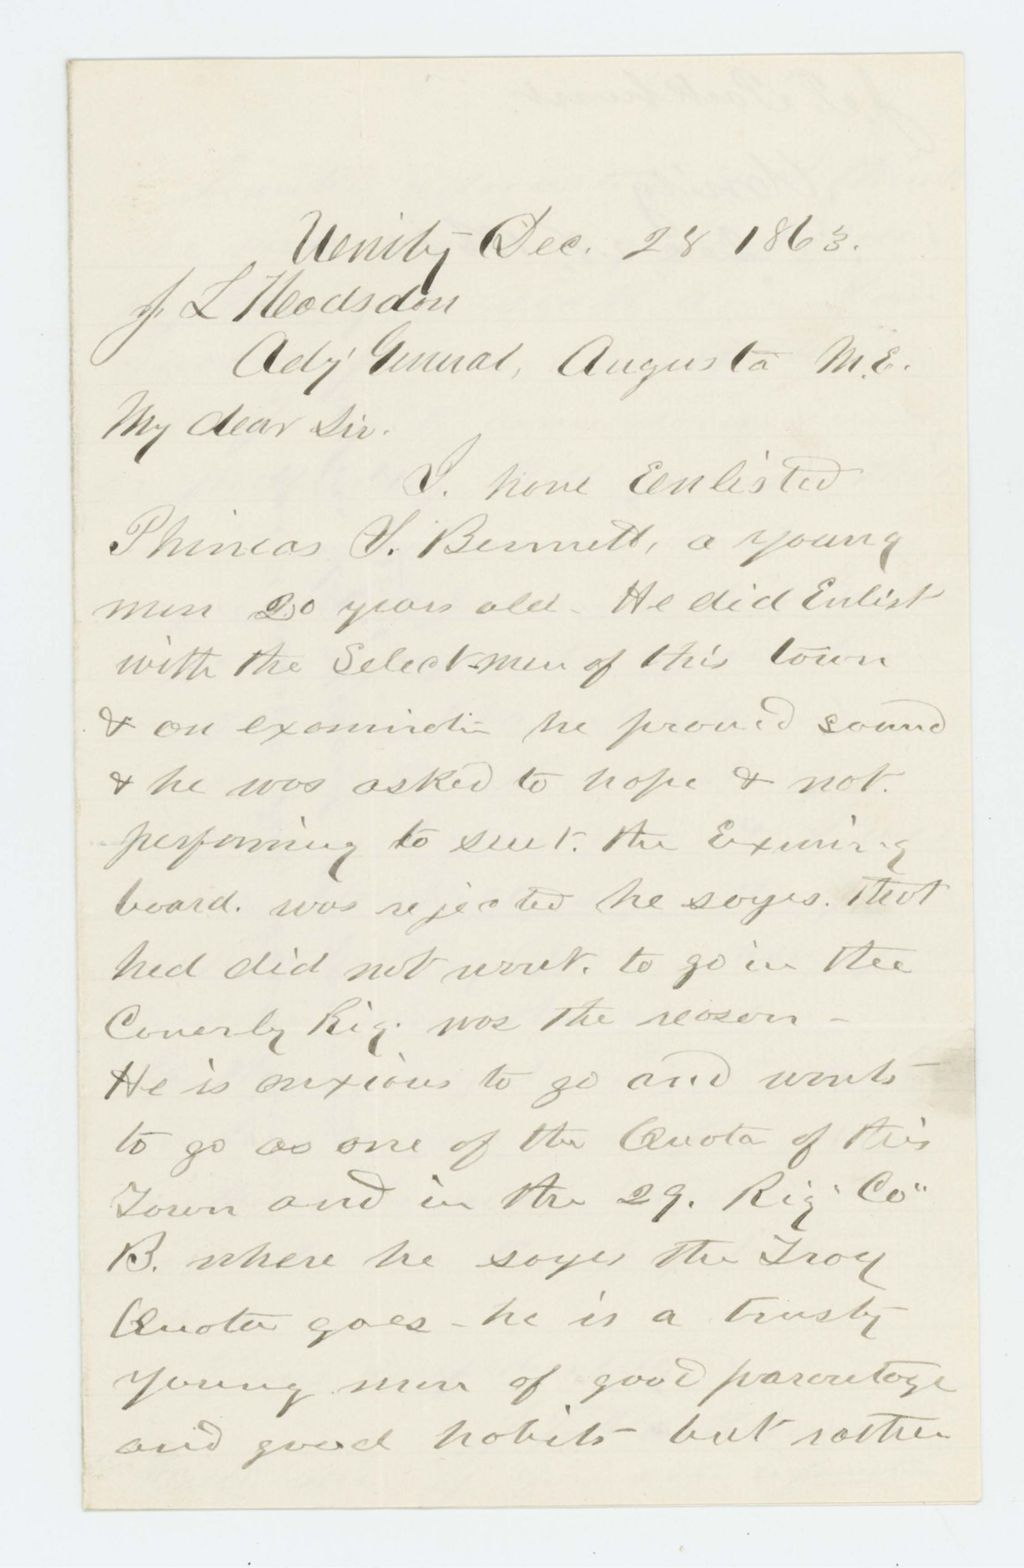 Unity Dec. 28 1863.
J. L Hodsdon
Adj' General, Augusta M.E.
My dear Sir.
I. have Enlisted
Phineas S. Bennett, a young
man 20 years old. He did Enlist
with the Selectmen of this town
& on examinatin he proved sound
& he was asked to hope & not
performing to suit. the Exming
board. was rejected he sayes. that
hed did not want. to go in thee
Caverly Rig. was the reason -
He is anxious to go and wants
to go as one of the Quota of this
Town and in the 29. Rig" Co"
B. where he sayes the Troy
Quota goes - he is a trusty
young man of good parentage
and good habits but rather